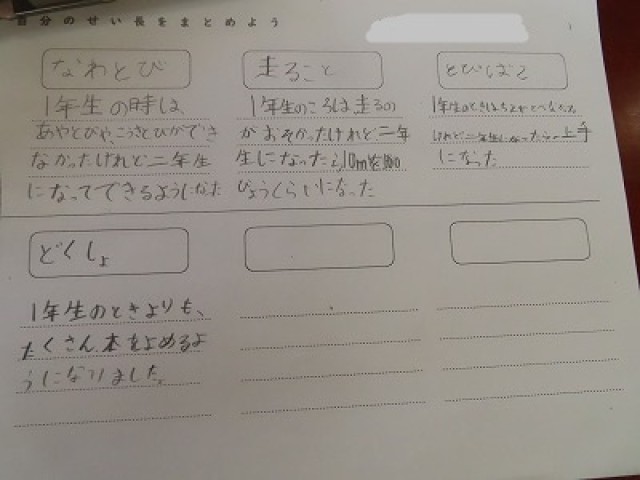 自分のせい長をまとめよう
なわとび
1年生の時は、
あやとびや、こうさとびができ
なかったけれど二年生
になってできるようになった
走ること
1年生のころは走るの
がおそかったけれど二年
生になったら、10mを100
びょうくらいになった
とびばこ
1年生のときは
けれど二年生になったら 上手
になった
どくしょ
1年生のときよりも、
たくさん本をよめるよ
うになりました。